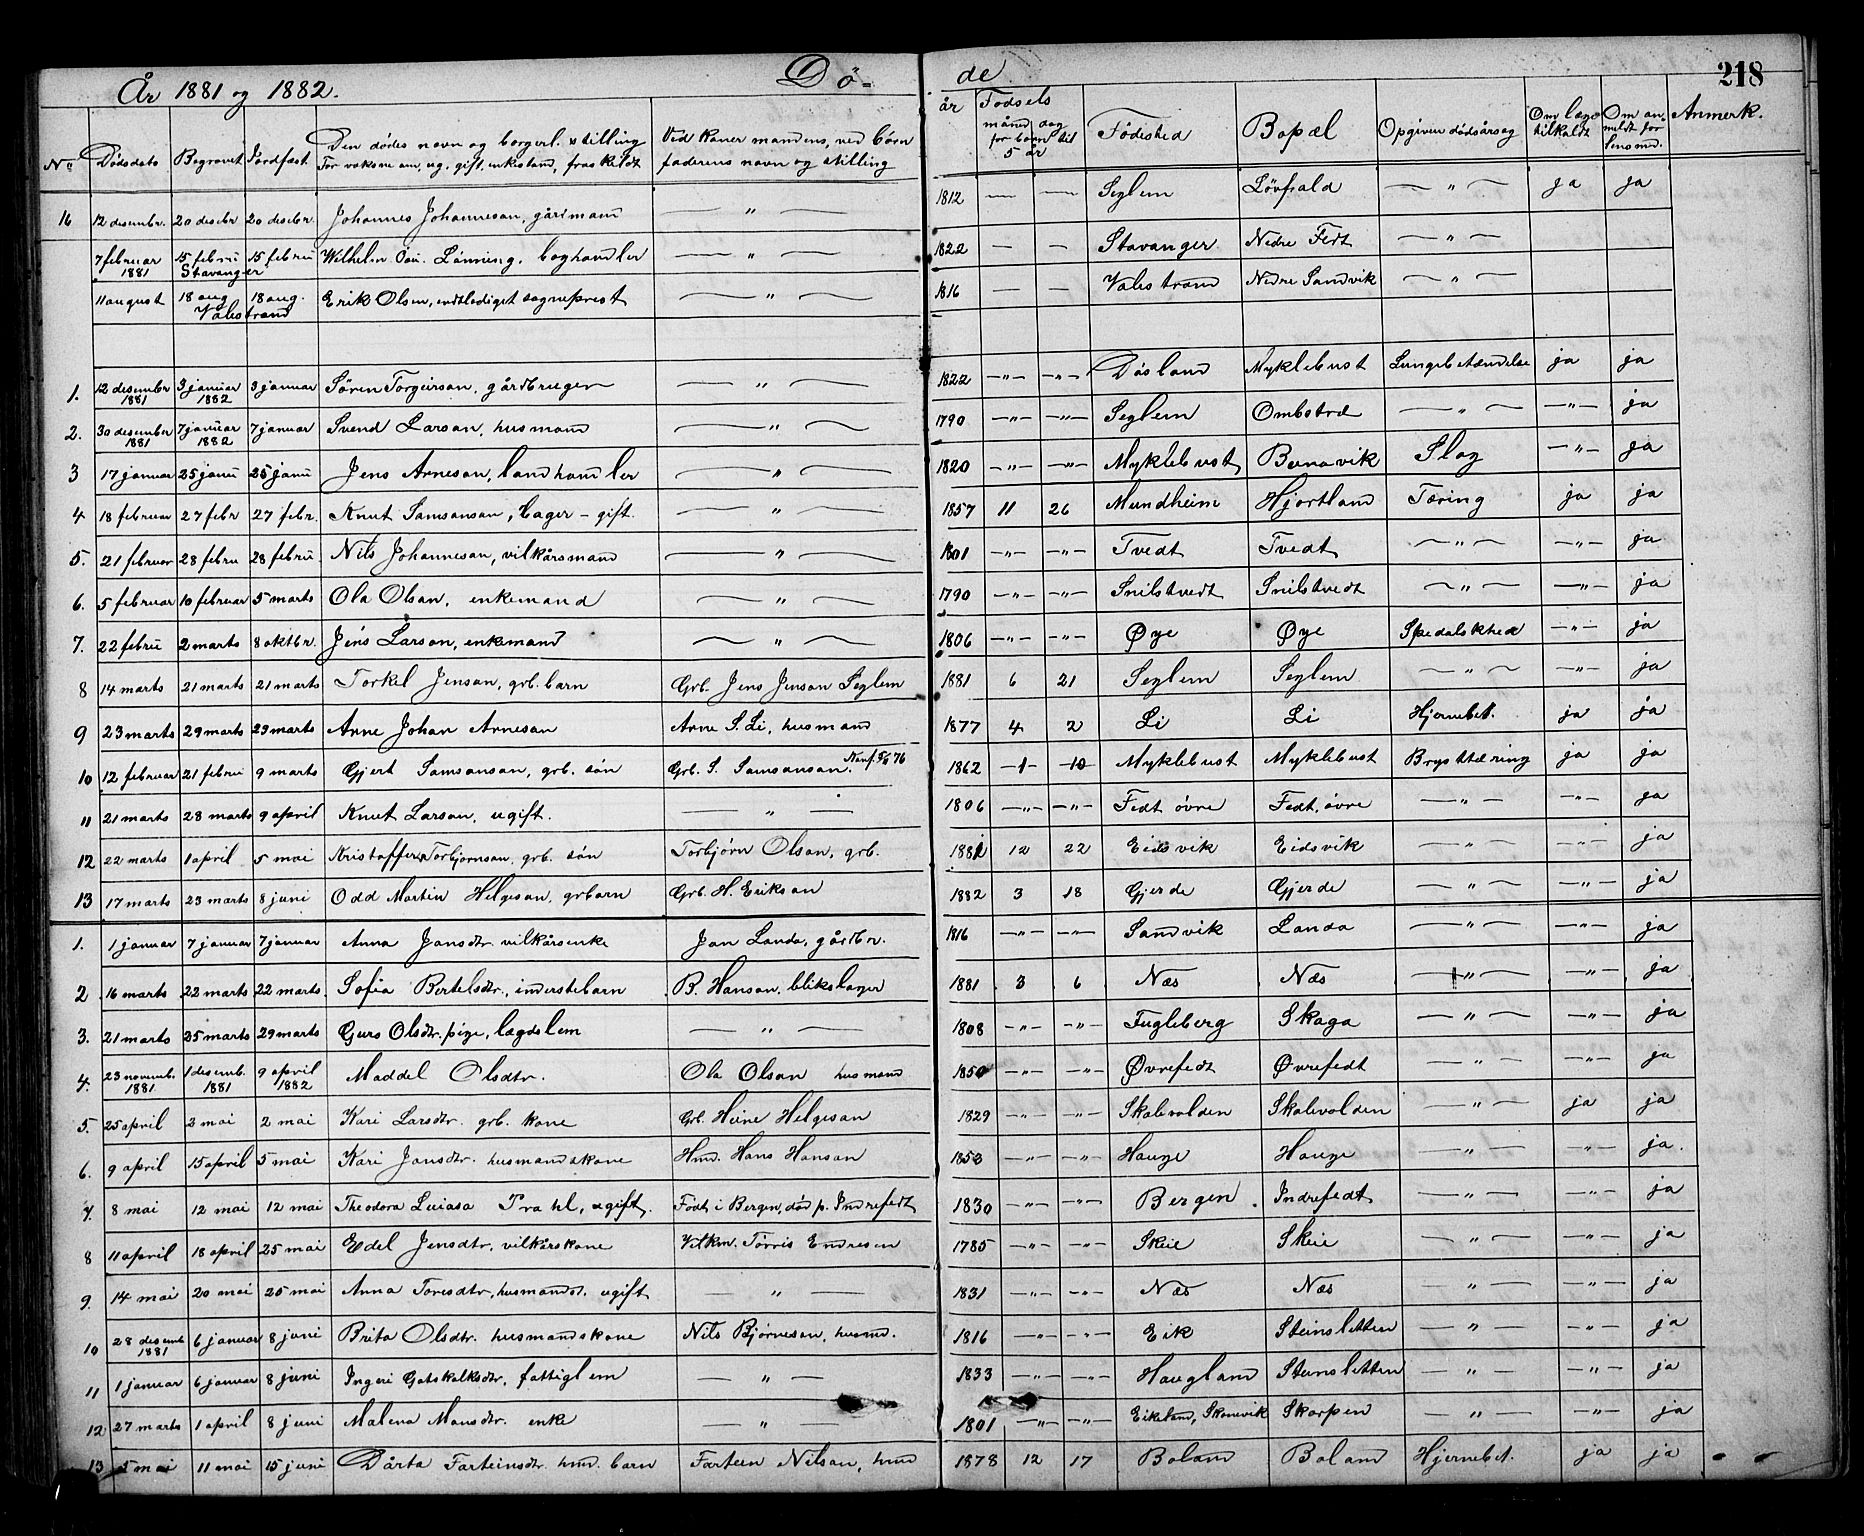 År 1881 og 1882. Dö- de 218
No Dödsdato Begravet Jordfæst Den dödes navn og borgerl. stilling For voksne om, ug. gift, enkestand, fraskildt Ved koner mandens, ved börn faderens navn og stilling år Födsels måned dag for barn til 5 år Födested Bopæl Opgiven dödsårsag Om læge tilkaldt Om anmeldt for lensmd. Anmerk.
16 12 desembr. 20 desbr 20 desbr. Johannes Johanneson, gårdmand — " — 1812 — — Seglem Lövfald — " — ja ja
7 februar 1881 15 febru Stavanger 15 febru Wilhelm Lönning, boghandler — " — 1822 — — Stavanger Nedre Fedt — " —
11 august 18 aug Valestrand 18 aug. Erik Olsen, entlediget sogneprest — " — 1816 — — Valestrand Nedre Sandvik — " —
1. 12 desember 1881 3 januar 1882 3 januar Sören Torgeirson, gårdbruger — " — 1822 —"— —"— Dösland Myklebust Lungebetændelse ja ja
2. 30 desember 1881 7 januar 1882 7 januar Svend Larson, husmand — " — 1790 —"— —"— Seglem Ombstrð — " — —"— ja
3 17 januar 25 janu 25 janu Jens Arneson, landhandler — " — 1820 —"— —"— Myklebust Bernavik Slag —"— ja
4 18 februar 27 febr 27 febr. Knut Samsonson, bager - gift. — " — 1857 11 26 Mundheim Hjortland Tæring ja ja
5. 21 februar 28 febru 28 febru Nils Johanneson, vilkårsmand — " — 1801 —"— —"— Tvedt Tvedt — " — —"— ja
6. 5 februar 10 februar 5 marts Ola Olson, enkemand — " — 1790 —"— —"— Snilstvedt Snilstvedt — " — —"— ja
7. 22 febru 2 marts 8 oktbr. Jens Larson, enkemand — " — 1806 —"— —"— Öye Öye Spedalskhed —"— ja
8 14 marts 21 marts 21 marts Torkel Jenson, grb. barn Grb. Jens Jenson Seglem 1881 6 21 Seglem Seglem — " — —"— ja
9 23 marts 29 marts 29 marts Arne Johan Arneson Arne S. Li, husmand 1877 4 2 Li Li Hjernebet. ja ja
10 12 februar 21 febru 9 marts Gjert Samsonson, grb. sön Grb. S. Samsonson. 1862 -1- -10- Myklebust Myklebust Brysttæring ja ja
11 21 marts 28 marts 9 april Knut Larson, ugift. — " — 1806 —"— —"— Fedt övre Fedt, övre — " — —"— ja
12 22 marts 1 april 5 mai Kristoffer Torbjornson, grb. sön Torbjörn Olson, grb. 1881 12 22 Eidsvik Eidsvik — " — —"— ja
13 17 marts 23 marts 8 juni Odd Martin Helgeson, grbarn Grb. H. Erikson 1882 3 18 Gjerde Gjerde — " — —"— ja
1. 1 januar 7 januar 7 januar Anna Jonsdtr. vilkårsenke Jon Landa, gårdbr. 1816 —"— —"— Sandvik Landa — " — —"— ja
2 16 marts 22 marts 22 marts. Sofia Bertelsdtr., inderstebarn B. Hanson, blikslager 1881 3 6 Næs Næs — " — —"— ja
3. 21 marts 25 marts 29 marts Guro Olsdtr. pige, lægdslem — " — 1808 —"— —"— Fugleberg Skaga — " — —"— ja
4. 23 novemb. 1881 1 desemb. 1881 9 april 1882 Maddel Olsdtr. Ola Olson husmand 1850 —"— —"— Övrefedt Övrefedt — " — —"— ja
5. 25 april 2 mai 2 mai Kari Larsdtr. grb. kone Grb. Heine Helgeson 1829 —"— —"— Skålevolden Skålevolden — " — ja ja
6. 9 april 15 april 5 mai Kari Jonsdtr. husmandskone Hmd. Hans Hanson 1853 —"— —"— Hauge Hauge — " — —"— ja.
7. 8 mai 12 mai 12 mai Theodora Luiasa Prahl, ugift. Födt i Bergen, död p. Indrefedt 1830 —"— —"— Bergen Indrefedt — " — —"— ja
8 11 april 18 april 25 mai Edel Jensdtr, vilkårskone Vilkm. Törris Endresen 1785 —"— —"— Skeie Skeie — " — —"— ja
9. 14 mai 20 mai 25 mai Anna Toresdtr, husmandst. ugift — " — 1831 —"— —"— Næs Næs — " — —"— ja
10 28 desemb 1881 6 januar 8 juni Brita Olsdtr. husmandskone Nils Björneson, husmd. 1816 —"— —"— Eik Steinsletten — " — —"— ja
11 1 januar 6 januar 8 juni Ingeri Gotskalksdtr, fattiglem — " — 1833 —"— —"— Haugland Steinsletten — " — —"— ja
12 27 marts 1 april 8 juni Malena Monsdtr. enke — " — 1801 —"— —"— Eikeland, Skonevik Skorpen — " — —"— ja
13 5 mai 11 mai 15 juni Dårta Farteinsdtr. hmd. barn Fartein Nilson, hmd 1878 12 17 Boland Boland Hjernebet. ja ja